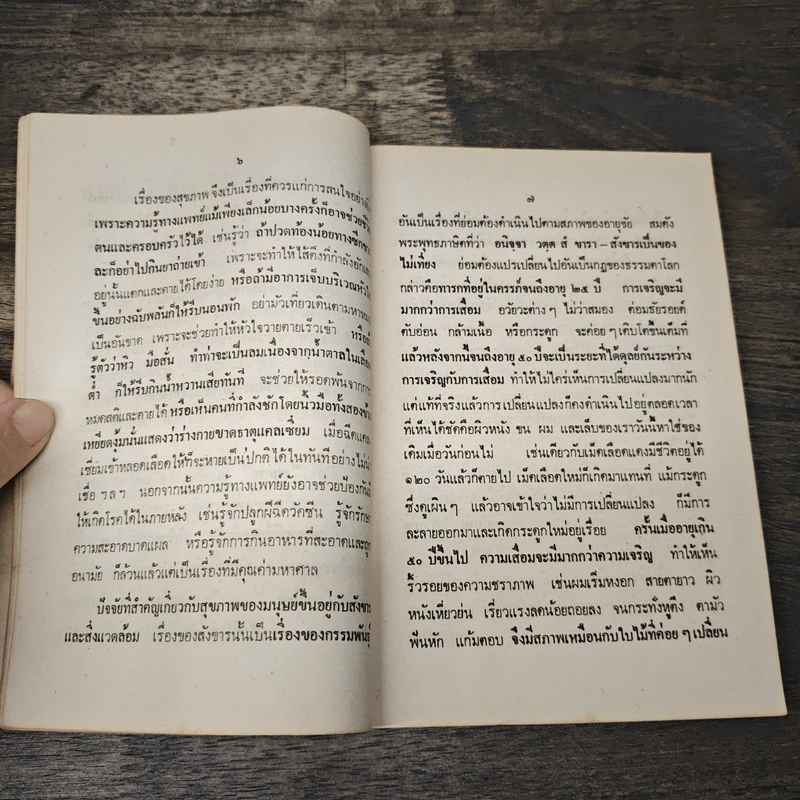 ๖
เรื่องของสุขภาพ จึงเป็นเรื่องที่ควรแก่การสนใจอย่าง
เพราะความรู้ทางแพทย์แม้เพียงเล็กน้อยบางครั้งก็อาจช่วย
ตนและครอบครัวไว้ได้ เช่นรู้ว่า ถ้าปวดท้องน้อยทางซีก
ละก็อย่าไปกินยาถ่ายเข้า เพราะจะทำให้ไส้ติ่งที่กำลังอักเสบ
อยู่นั้นแตกและตายได้โดยง่าย หรือถ้ามีอาการเจ็บบริเวณหัวใจ
ขึ้นอย่างฉับพลันก็ให้รีบนอนพัก อย่ามัวเที่ยวเดินตามหาหมอ
เป็นอันขาด เพราะจะช่วยทำให้หัวใจวายตายเร็วเข้า หรือ
รู้ตัวว่าหิว มือสั่น ทำท่าจะเป็นลมเนื่องจากน้ำตาลในเลือด
ต่ำ ก็ให้รีบกินน้ำหวานเสียทันที จะช่วยให้รอดพ้นจาก
หมดสติและตายได้ หรือเห็นคนที่กำลังชักโดยนิ้วมือทั้งสองข้าง
เหยียดงุ้มนั่นแสดงว่าร่างกายขาดธาตุแคลเซี่ยม เมื่อฉีดแคล
เซี่ยมเข้าหลอดเลือดให้ก็จะหายเป็นปกติได้ในทันทีอย่างไม่น่า
เชื่อ ฯลฯ นอกจากนั้นความรู้ทางแพทย์ยังอาจช่วยป้องกันมิ
ให้เกิดโรคได้ในภายหลัง เช่นรู้จักปลูกฝีฉีดวัคซีน รู้จักรักษา
ความสะอาดบาดแผล หรือรู้จักการกินอาหารที่สะอาดและถูก
อนามัย ก็ล้วนแล้วแต่เป็นเรื่องที่มีคุณค่ามหาศาล
ปัจจัยที่สำคัญเกี่ยวกับสุขภาพของมนุษย์ขึ้นอยู่กับสังขาร
และสิ่งแวดล้อม เรื่องของสังขารนั้นเป็นเรื่องของกรรมพันธุ์
๗
อันเป็นเรื่องที่ย่อมต้องดำเนินไปตามสภาพของอายุขัย สมดัง
พระพุทธภาษิตที่ว่า อนิจฺจา วตฺต สํ ขารา – สังขารเป็นของ
ไม่เที่ยง ย่อมต้องแปรเปลี่ยนไปอันเป็นกฎของธรรมดาโลก
กล่าวคือทารกที่อยู่ในครรภ์จนถึงอายุ ๒๕ ปี การเจริญจะมี
มากกว่าการเสื่อม อวัยวะต่างๆ ไม่ว่าสมอง ต่อมธัยรอยด์
ตับอ่อน กล้ามเนื้อ หรือกระดูก จะค่อยๆ เติบโตขึ้นเต็มที่
แล้วหลังจากนี้จนถึงอายุ ๕๐ ปีจะเป็นระยะที่ได้ดุลย์กันระหว่าง
การเจริญกับการเสื่อม ทำให้ไม่ใคร่เห็นการเปลี่ยนแปลงมากนัก
แต่แท้ที่จริงแล้วการเปลี่ยนแปลงก็คงดำเนินไปอยู่ตลอดเวลา
ที่เห็นได้ชัดคือผิวหนัง ขน ผม และเล็บของเราวันนี้หาใช่ของ
เดิมเมื่อวันก่อนไม่ เช่นเดียวกับเม็ดเลือดแดงมีชีวิตอยู่ได้
๑๒๐ วันแล้วก็ตายไป เม็ดเลือดใหม่ก็เกิดมาแทนที่ แม้กระดูก
ซึ่งดูเผินๆ แล้วอาจเข้าใจว่าไม่มีการเปลี่ยนแปลง ก็มีการ
ละลายออกมาและเกิดกระดูกใหม่อยู่เรื่อย ครั้นเมื่ออายุเกิน
๕๐ ปีขึ้นไป ความเสื่อมจะมีมากกว่าความเจริญ ทำให้เห็น
ริ้วรอยของความชราภาพ เช่นผมเริ่มหงอก สายตายาว ผิว
หนังเหี่ยวย่น เรี่ยวแรงลดน้อยถอยลง จนกระทั่งหูตึง ตามัว
ฟันหัก แก้มตอบ จึงมีสภาพเหมือนกับใบไม้ที่ค่อยๆ เปลี่ยน